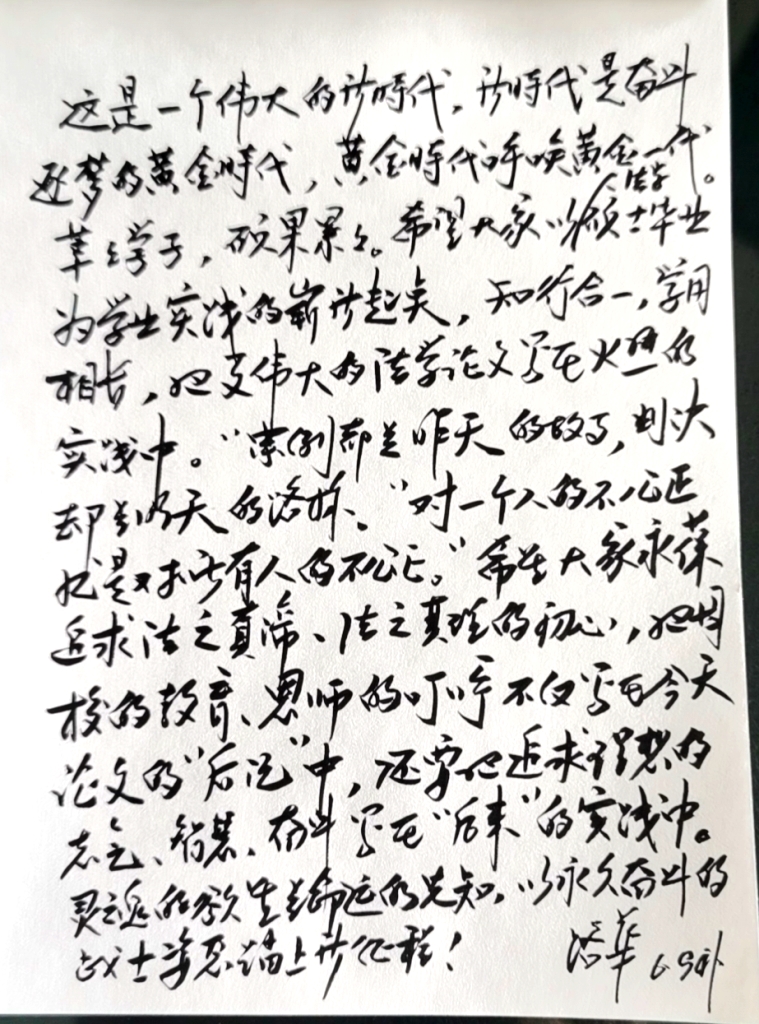 这是一个伟大的新時代，新時代是奋斗
逐梦的黄金時代，黄金時代呼唤黄金一代。
莘莘学子，硕果累累。希望大家以法学硕士毕业
为学业实践的崭新起点，知行合一，学用
相长，把更伟大的法学论文写在火热的
实践中。“案例都是昨天的故事，判决
却是明天的。“对一个人的不公正
就是对所有人的不公正。”希望大家永葆
追求法之真谛、法之真理的初心，把母
校的教育、恩师的叮咛不仅写在今天
论文的“后记”中，还要把追求理想的
志气、智慧、奋斗写在“后来”的实践中。
灵魂的歌生命运的先知，以永久奋斗的
战士姿态踏上新征程！
华 6.9补